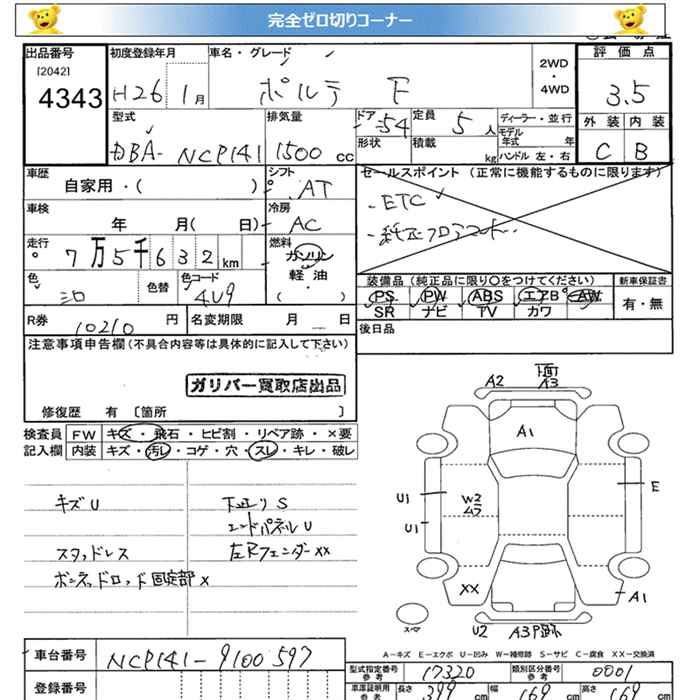 完全ゼロ切りコーナー
出品番号 初度登録年月 車名・グレード 評価点
[2042] 2WD
4343 H26 1月 ポルテ F ・ 3.5
4WD
型式 排気量 ドア 54 定員 5人 ディーラー・並行 外装 内装
DBA-NCP141 1500cc 形状 積載 kg モデル年式 年 C B
ハンドル 左・右
車歴 シフト セールスポイント (正常に機能するものに限ります)
自家用・( ) AT
・ETC
車検 冷房
年 月( 日) AC
・純正フロアマット
走行 燃料
7万5千632km ガソリン
軽油
( )
装備品 (純正品に限り○をつけてください) 新車保証書
色 色替 色コード PS PW ABS エアB AW 有・無
シロ 4U9 SR ナビ TV カワ
R券 10210円 名変期限 月 日 後日品
注意事項申告欄(不具合内容等は具体的に記入して下さい)
ガリバー買取店出品
修復歴 有 [箇所 ]
検査員 FW キズ・飛石・ヒビ割・リペア跡・×要
記入欄 内装 キズ・汚レ・コゲ・穴・スレ・キレ・破レ
キズU 下廻りS
エンドパネルU
スタッドレス 左Rフェンダーxx
ボンネットロッド固定部x
A2 下面 A3
A1
U1 W2 E
U1
XX A1
スペア
U2 A3P跡
A-キズ E-エクボ U-凹み W-補修跡 S-サビ C-腐食 XX-交換済
車台番号 NCP141-9100597
型式指定番号 17320 類別区分番号 0001
登録番号 車庫証明用参考 長さ 399cm 幅 169cm 高さ 169cm